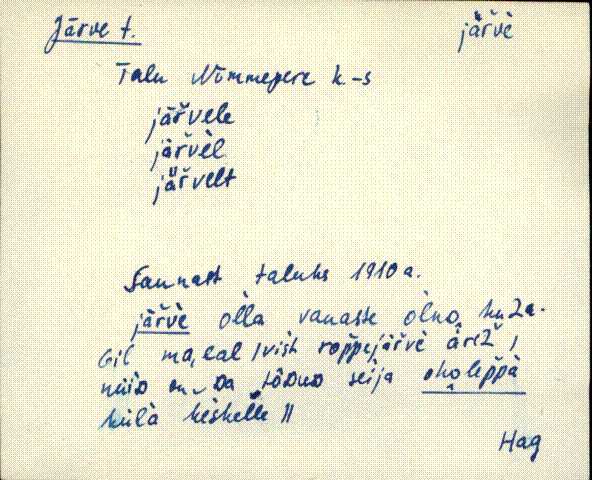 Järve t.
järvè
Talu Nõmmepere k.-s
järvele
järvèl
järvelt
Saunast taluks 1910a.
järvè olla vanasse olno, ku
maal roppejärvè
nüiD on Da tõDuD seija oholeppä
külä keskelle ||
Hag